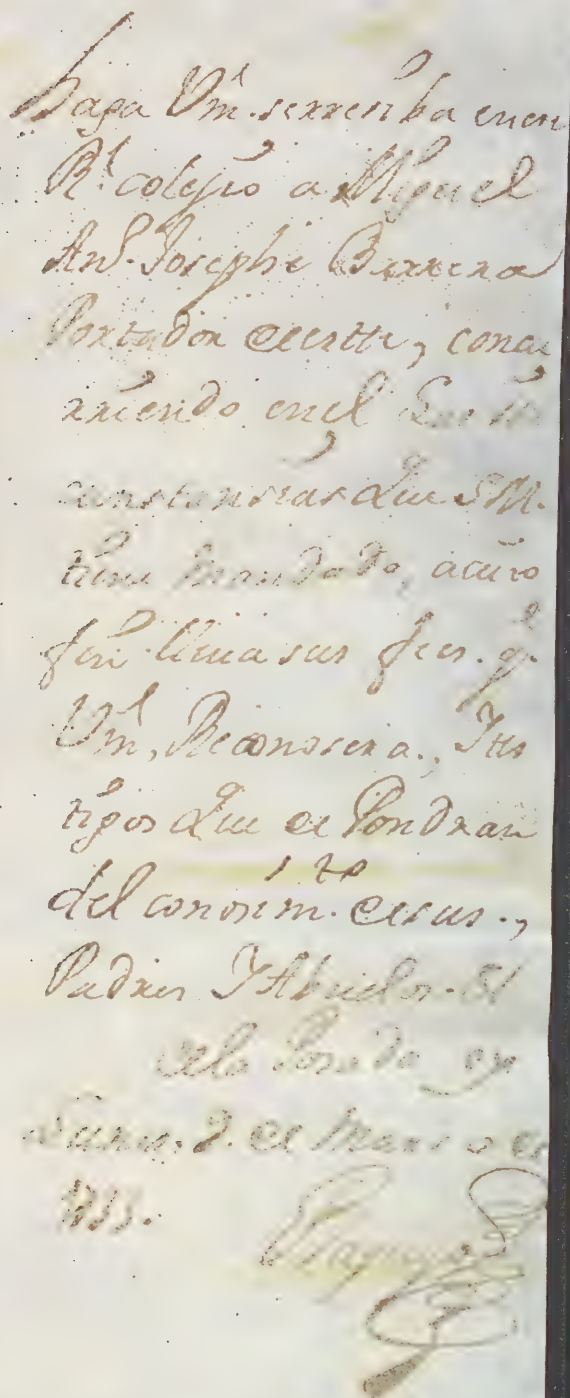 haga Vm.d se rresiba en ese
R.l colejio a Miguel
Ant.o Joseph de Barrera
Portador de este, concu
rriendo en el las
cunstansias que S M.
tiene mandado, a cuio
fin lleva sus fees. q.e
Vm.d, Reconosera., Y tes
tigos que de Pondran
del conosim.to de sus.,
Padres Y Abuelos.
de la Posada, oy
Lunes, 3. de Marzo de
1755.